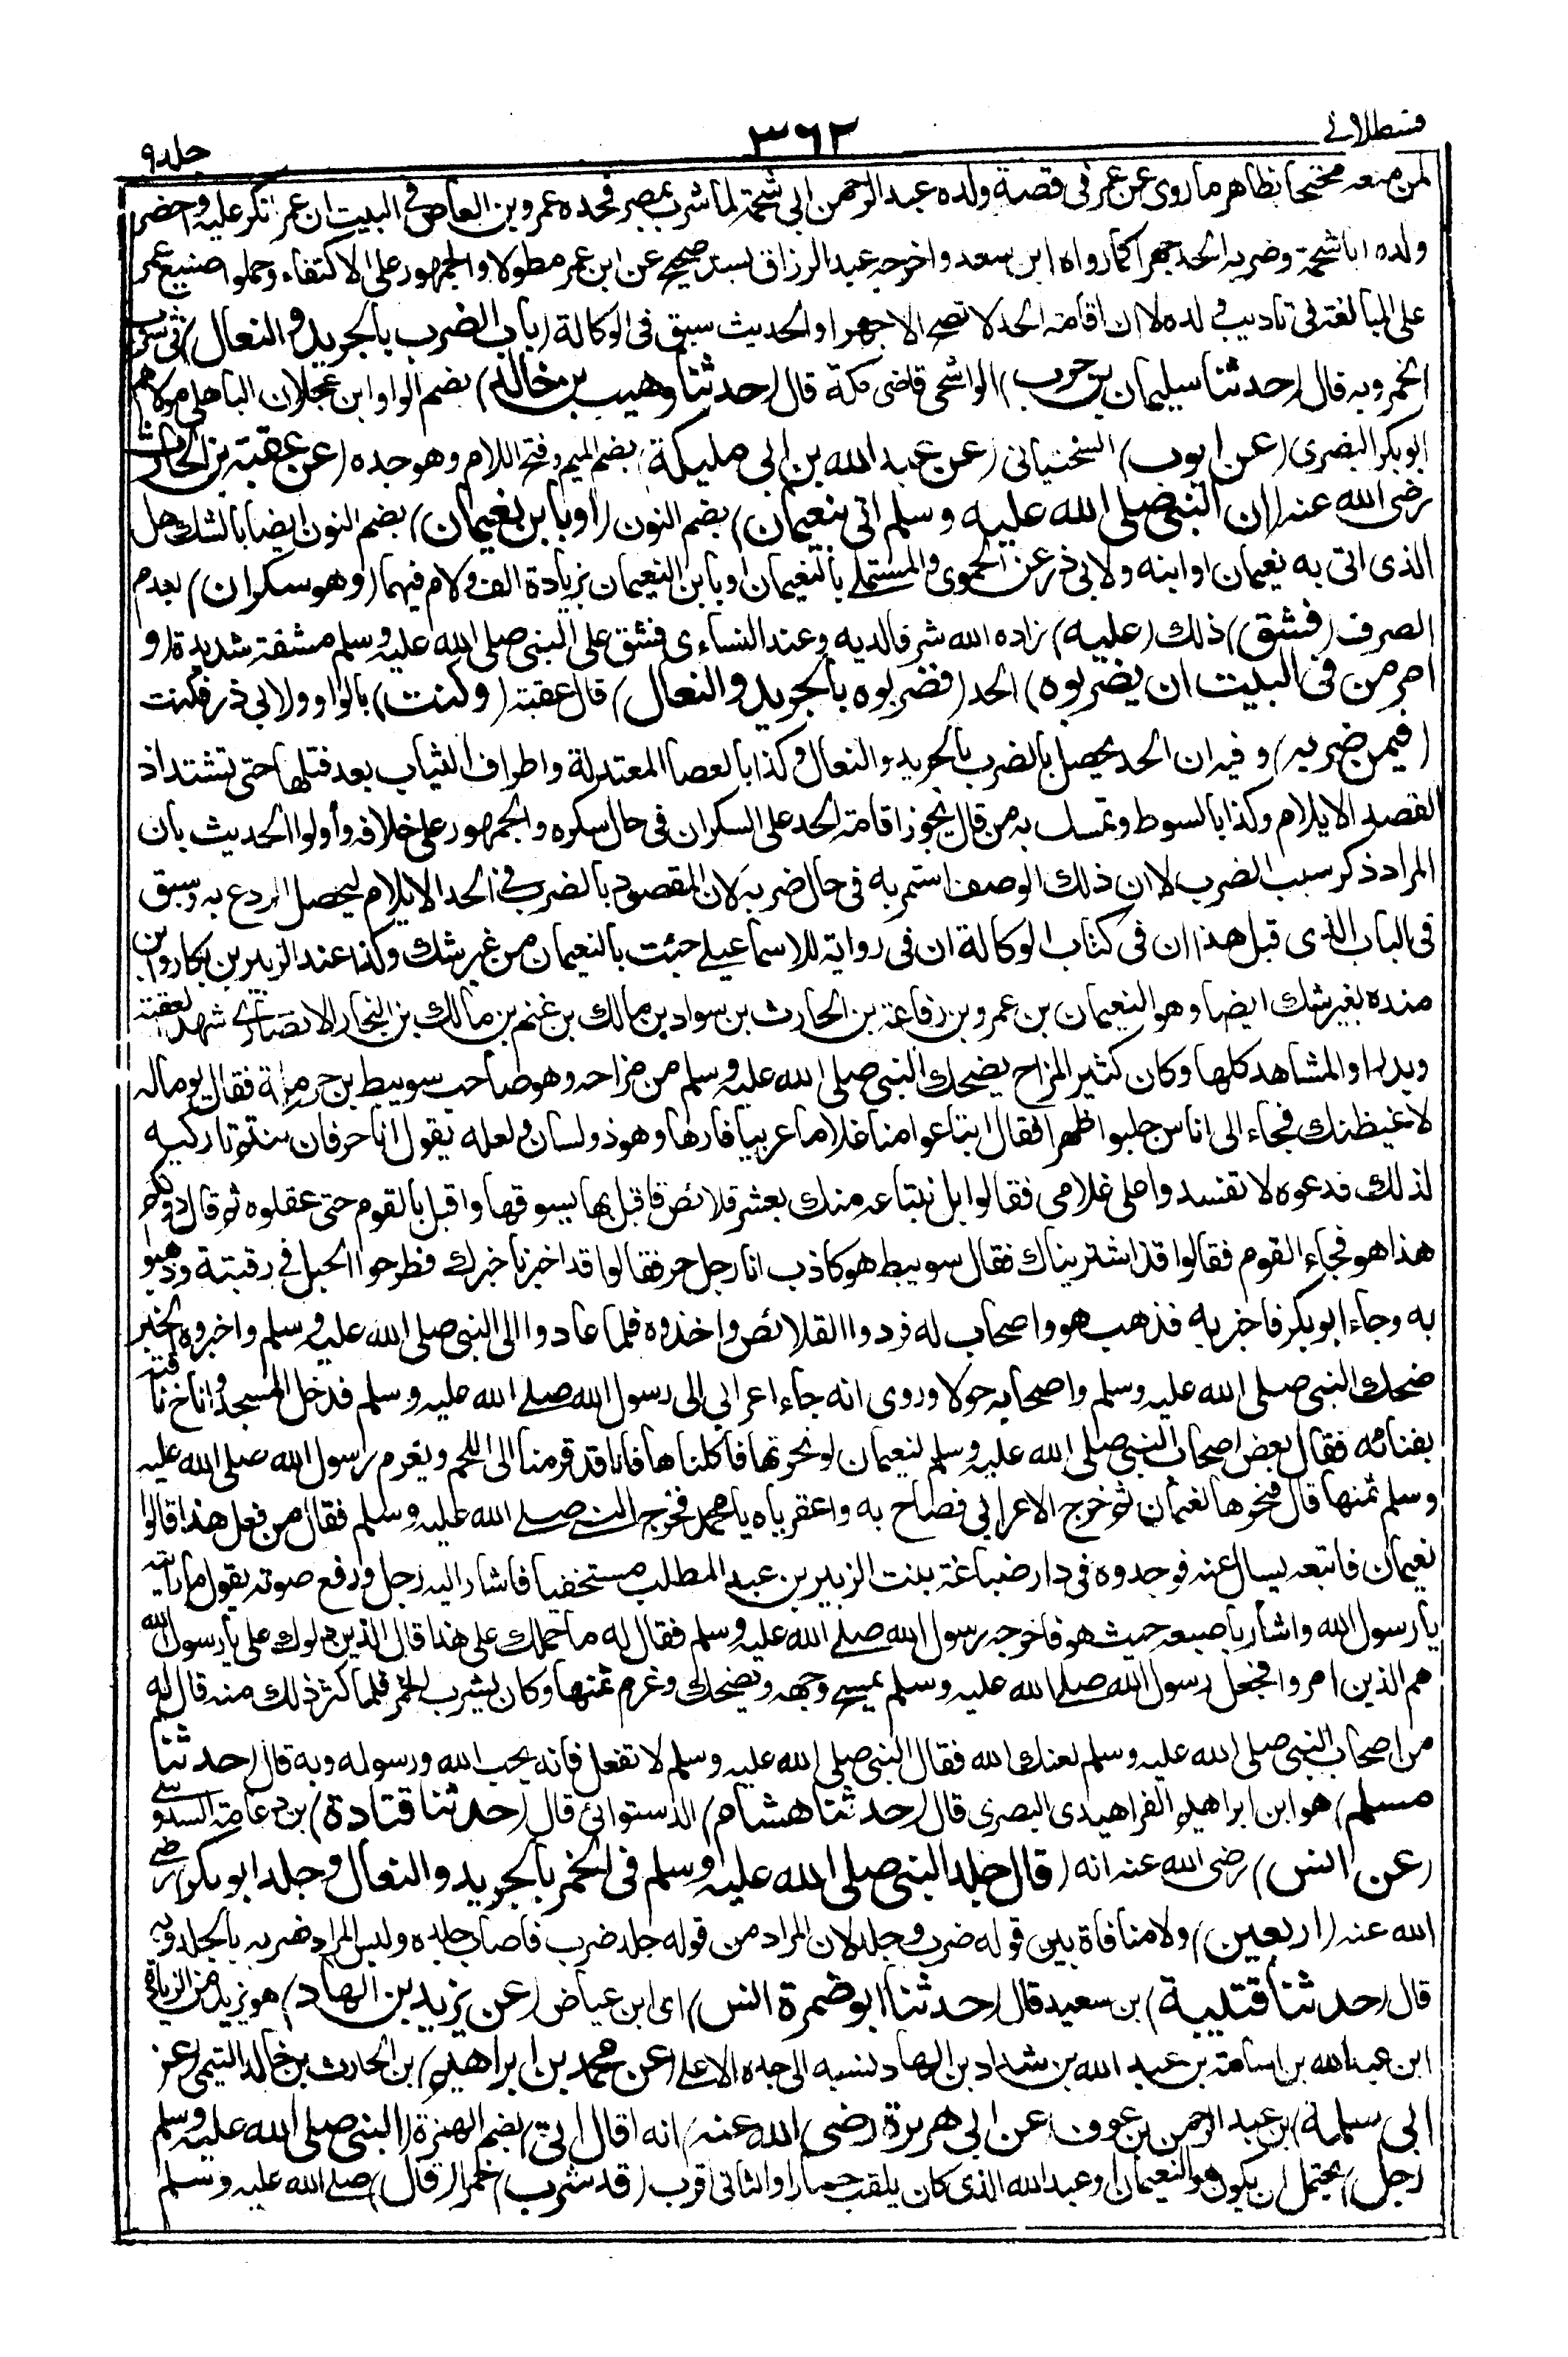 قسطلانی
٣٦٢
جلد ٩
لمن منعه محتجا بظاهر ما روى عن عمر فى قصة ولده عبد الرحمن ابى شحمة لما شرب بمصر فحده عمرو بن العاص فى البيت ان عمر انكر عليه واحضر
ولده ابا شحمة وضربه الحد جهرا كما رواه ابن سعد واخرجه عبد الرزاق بسند صحيح عن ابن عمر مطولا والجمهور على الاكتفاء وحملوا صنيع عمر
على المبالغة فى تاديب ولده لا ان اقامة الحد لا تصح الا جهرا والحديث سبق فى الوكالة (باب الضرب بالجريد والنعال) فى شرب
الخمر وبه قال (حدثنا سليمان بن حرب) الواشحى قاضى مكة قال (حدثنا وهيب بن خالد) بضم الواو ابن عجلان الباهلى مولاهم
ابو بكر البصرى (عن ايوب) السختيانى (عن عبد الله بن ابى مليكة) بضم الميم وفتح اللام وهو جده (عن عقبة بن الحارث)
رضى الله عنه (ان النبى صلى الله عليه وسلم اتى بنعيمان) بضم النون (او بابن نعيمان) بضم النون ايضا بالشك هل
الذى اتى به نعيمان او ابنه ولابى ذر عن الحموى والمستملے بالنعيمان او بابن النعيمان بزيادة الف ولام فيهما (وهو سكران) بعدم
الصرف (فشق) ذلك (عليه) زاده الله شرفا لديه وعند النساءى فشق على النبى صلى الله عليه وسلم مشقة شديدة (و
امر من فى البيت ان يضربوه) الحد (فضربوه بالجريد والنعال) قال عقبة (وكنت) بالواو ولابى ذر فكنت
(فيمن ضربه) وفيه ان الحد يحصل بالضرب بالجريد والنعال وكذا بالعصا المعتدلة واطراف الثياب بعد فتلها حتى تشتد اذ
القصد الايلام وكذا بالسوط وتمسك به من قال يجوز اقامة الحد على السكران فى حال سكره والجمهور على خلافه وأولوا الحديث بان
المراد ذكر سبب الضرب لا ان ذلك الوصف استمر به فى حال ضربه لان المقصود بالضرب فى الحد الايلام ليحصل الردع به وسبق
فى الباب الذى قبل هذا ان فى كتاب الوكالة ان فى رواية للاسماعيلے جئت بالنعيمان من غير شك وكذا عند الزبير بن بكار وابن
منده بغير شك ايضا وهو النعيمان بن عمرو بن رفاعة بن الحارث بن سواد بن مالك بن غنم بن مالك بن النجار الانصارى شهد العقبة
وبدرا والمشاهد كلها وكان كثير المزاح يضحك النبى صلى الله عليه وسلم من مزاحه وهو صاحب سويبط بن حرملة فقال يوما له
لاغيظنك فجاء الى اناس جلبوا ظهرا فقال ابتاعوا منا غلاما عربيا فارها وهو ذو لسان ولعله يقول انا حر فان كنتم تاركيه
لذلك فدعوه لا تفسدوا على غلامى فقالوا بل نبتاعه منك بعشر قلائص فاقبل بها يسوقها واقبل بالقوم حتى عقلوه ثم قال دونكم
هذا هو فجاء القوم فقالوا قد اشتريناك فقال سويبط هو كاذب انا رجل حر فقالوا قد اخبرنا خبرك فطرحوا الحبل فى رقبته وذهبوا
به وجاء ابو بكر فاخبر به فذهب هو واصحاب له فردوا القلائص واخذوه فلما عادوا الى النبى صلى الله عليه وسلم واخبروه الخبر
ضحك النبى صلى الله عليه وسلم واصحابه حولا وروى انه جاء اعرابى الى رسول الله صلے الله عليه وسلم فدخل المسجد واناخ ناقته
بفنائه فقال بعض اصحاب النبى صلى الله عليه وسلم لنعيمان لو نحرتها فاكلناها فانا قد قرمنا الى اللحم ويغرم رسول الله صلى الله عليه
وسلم ثمنها قال فنحرها نعيمان ثم خرج الاعرابى فصاح به واعقرباه يا محمد فخرج النبى صلے الله عليه وسلم فقال من فعل هذا قالوا
نعيمان فاتبعه يسال عنه فوجدوه فى دار ضباعة بنت الزبير بن عبد المطلب مستخفيا فاشار اليه رجل ورفع صوته يقول ما رايته
يا رسول الله واشار باصبعه حيث هو فاخرجه رسول الله صلے الله عليه وسلم فقال له ما حملك على هذا قال الذين دلوك على يا رسول الله
هم الذين امروا فجعل رسول الله صلے الله عليه وسلم يمسح وجهه ويضحك وغرم ثمنها وكان يشرب الخمر فلما كثر ذلك منه قال له
من اصحاب النبى صلى الله عليه وسلم لعنك الله فقال النبى صلى الله عليه وسلم لا تفعل فانه يحب الله ورسوله وبه قال (حدثنا
مسلم) هو ابن ابراهيم الفراهيدى البصرى قال (حدثنا هشام) الدستوائى قال (حدثنا قتادة) بن دعامة السدوسے
(عن انس) رضى الله عنه انه (قال جلد النبى صلى الله عليه وسلم فى الخمر بالجريد والنعال وجلد ابو بكر) رضے
الله عنه (اربعين) ولا منافاة بين قوله ضرب وجلد لان المراد من قوله جلد ضرب فاصاب جلده وليس المراد ضربه بالجلد وبه
قال (حدثنا قتيبة) بن سعيد قال (حدثنا ابو ضمرة انس) اى ابن عياض (عن يزيد بن الهاد) هو يزيد من الزيادة
ابن عبد الله بن اسامة بن عبد الله بن شداد بن الهاد لنسبه الى جده الاعلے (عن محمد بن ابراهيم) بن الحارث بن خالد التيمى (عن
ابى سلمة) بن عبد الرحمن بن عوف (عن ابى هريرة رضى الله عنه) انه (قال اتى) بضم الهمزة (النبى صلى الله عليه وسلم
رجل) يحتمل ان يكون هو النعيمان او عبد الله الذى كان يلقب حمارا والثانى اقرب (قد شرب) خمرا (قال) صلے الله عليه وسلم